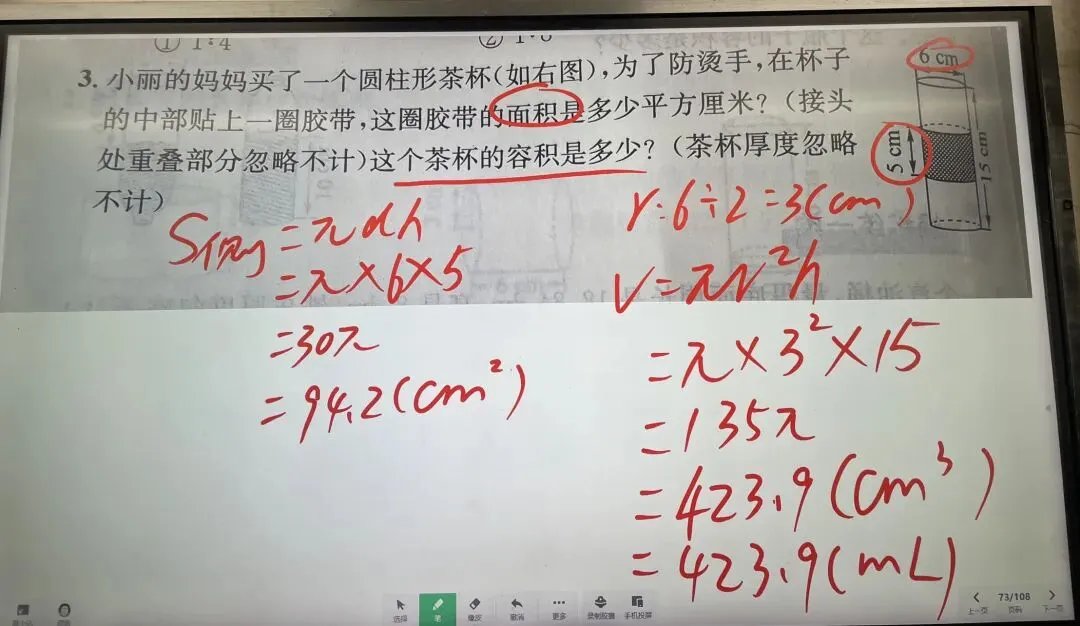 ① 1:4
3. 小丽的妈妈买了一个圆柱形茶杯(如右图),为了防烫手,在杯子
的中部贴上一圈胶带,这圈胶带的面积是多少平方厘米?(接头
处重叠部分忽略不计)这个茶杯的容积是多少?(茶杯厚度忽略
不计)
6 cm
5 cm
15 cm
S侧=πdh
=π×6×5
=30π
=94.2(cm²)
r:6÷2=3(cm)
V=πr²h
=π×3²×15
=135π
=423.9(cm³)
=423.9(mL)
选择
笔
橡皮
撤消
更多
录制胶囊
手机投屏
上一页
73/108
页码
下一页